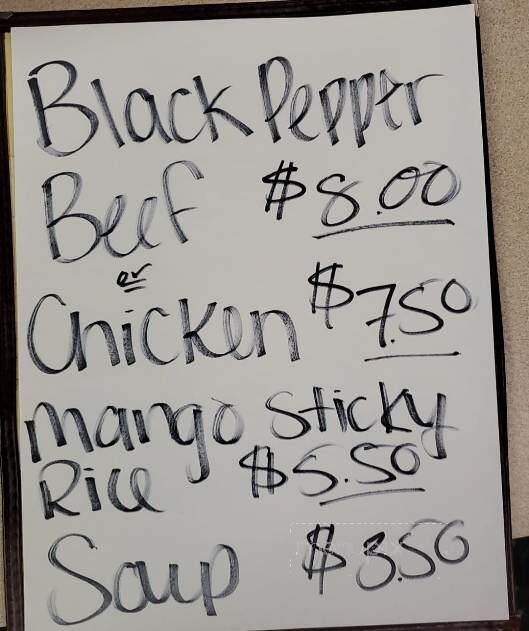 Black Pepper
Beef $8.00
or
Chicken $7.50
Mango Sticky
Rice $5.50
Soup $3.50